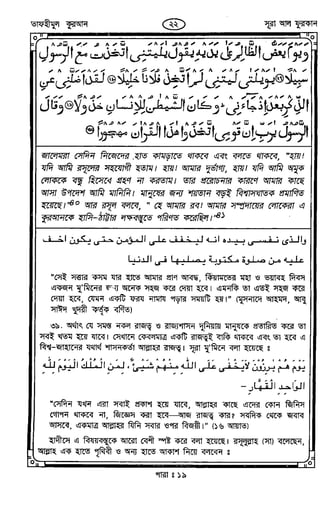 তাফহীমুল কুরআন
২২
সূরা আল ফুরকান
وَيَوْمَ يَعَضُّ الظَّالِمُ عَلَىٰ يَدَيْهِ يَقُولُ يٰلَيْتَنِي اتَّخَذْتُ مَعَ الرَّسُولِ
سَبِيلًا ۝ يٰوَيْلَتَىٰ لَيْتَنِي لَمْ أَتَّخِذْ فُلَانًا خَلِيلًا ۝ لَقَدْ أَضَلَّنِي عَنِ
الذِّكْرِ بَعْدَ إِذْ جَاءَنِي ۗ وَكَانَ الشَّيْطٰنُ لِلْإِنْسَانِ خَذُولًا ۝ وَقَالَ
الرَّسُولُ يٰرَبِّ إِنَّ قَوْمِي اتَّخَذُوا هٰذَا الْقُرْآنَ مَهْجُورًا ۝
জালেমরা সেদিন নিজেদের হাত কামড়াতে থাকবে এবং বলতে থাকবে, "হায়!
যদি আমি রসূলের সহযোগী হতাম। হায়! আমার দুর্ভাগ্য, হায়! যদি আমি অমুক
লোককে বন্ধু হিসেবে গ্রহণ না করতাম। তার প্ররোচনার কারণে আমার কাছে
আসা উপদেশ আমি মানিনি। মানুষের জন্য শয়তান বড়ই বিশ্বাসঘাতক প্রমাণিত
হয়েছে।৪০ আর রসূল বলবে, "হে আমার রব! আমার সম্প্রদায়ের লোকেরা এ
কুরআনকে হাসি-ঠাট্টার লক্ষবস্তুতে পরিণত করেছিল।"৪১
والذى نفسى بيده انه ليخفف على المؤمن حتى يكون اخف
عليه من صلوة مكتوبة يصليها فى الدنيا
"সেই সত্তার কসম যার হাতে আমার প্রাণ আবদ্ধ, কিয়ামতের মহা ও ভয়াবহ দিবস
একজন মু'মিনের জন্য অনেক সহজ করে দেয়া হবে। এমনকি তা এতই সহজ করে
দেয়া হবে, যেমন একটি ফরয নামায পড়ার সময়টি হয়।" (মুসনাদে আহমদ, আবু
সাঈদ খুদরী কর্তৃক বর্ণিত)
৩৯. অর্থাৎ যে সমস্ত নকল রাজত্ব ও রাজ্যশাসন দুনিয়ায় মানুষকে প্রতারিত করে তা
সবই খতম হয়ে যাবে। সেখানে কেবলমাত্র একটি রাজত্বই বাকি থাকবে এবং তা হবে এ
বিশ্ব-জাহানের যথার্থ শাসনকর্তা আল্লাহর রাজত্ব। সূরা মু'মিনে বলা হয়েছে :
يَوْمَ هُمْ بَارِزُونَ لَا يَخْفَىٰ عَلَى اللَّهِ مِنْهُمْ شَيْءٌ ۚ لِمَنِ الْمُلْكُ الْيَوْمَ لِلَّهِ
الْوَاحِدِ الْقَهَّارِ -
"সেদিন যখন এরা সবাই প্রকাশ হয়ে যাবে, আল্লাহর কাছে এদের কোন জিনিস
গোপন থাকবে না, জিজ্ঞেস করা হবে—আজ রাজত্ব কার? সবদিক থেকে জবাব
আসবে, একমাত্র আল্লাহর যিনি সবার ওপর বিজয়ী।" (১৬ আয়াত)
হাদীসে এ বিষয়বস্তুকে আরো বেশী স্পষ্ট করে বলা হয়েছে। রসূলুল্লাহ (সা) বলেছেন,
আল্লাহ এক হাতে পৃথিবী ও অন্য হাতে আকাশ নিয়ে বলবেন :
পারা : ১৯